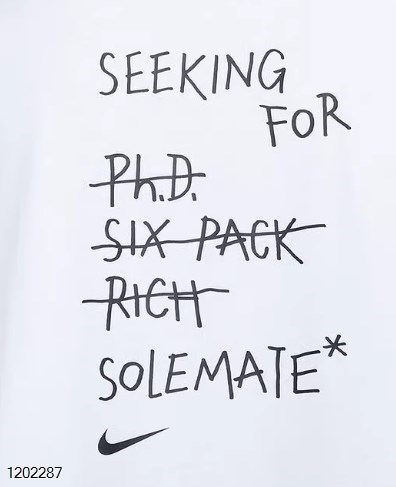 SEEKING
FOR
Ph.D.
SIX PACK
RICH
SOLEMATE*
1202287